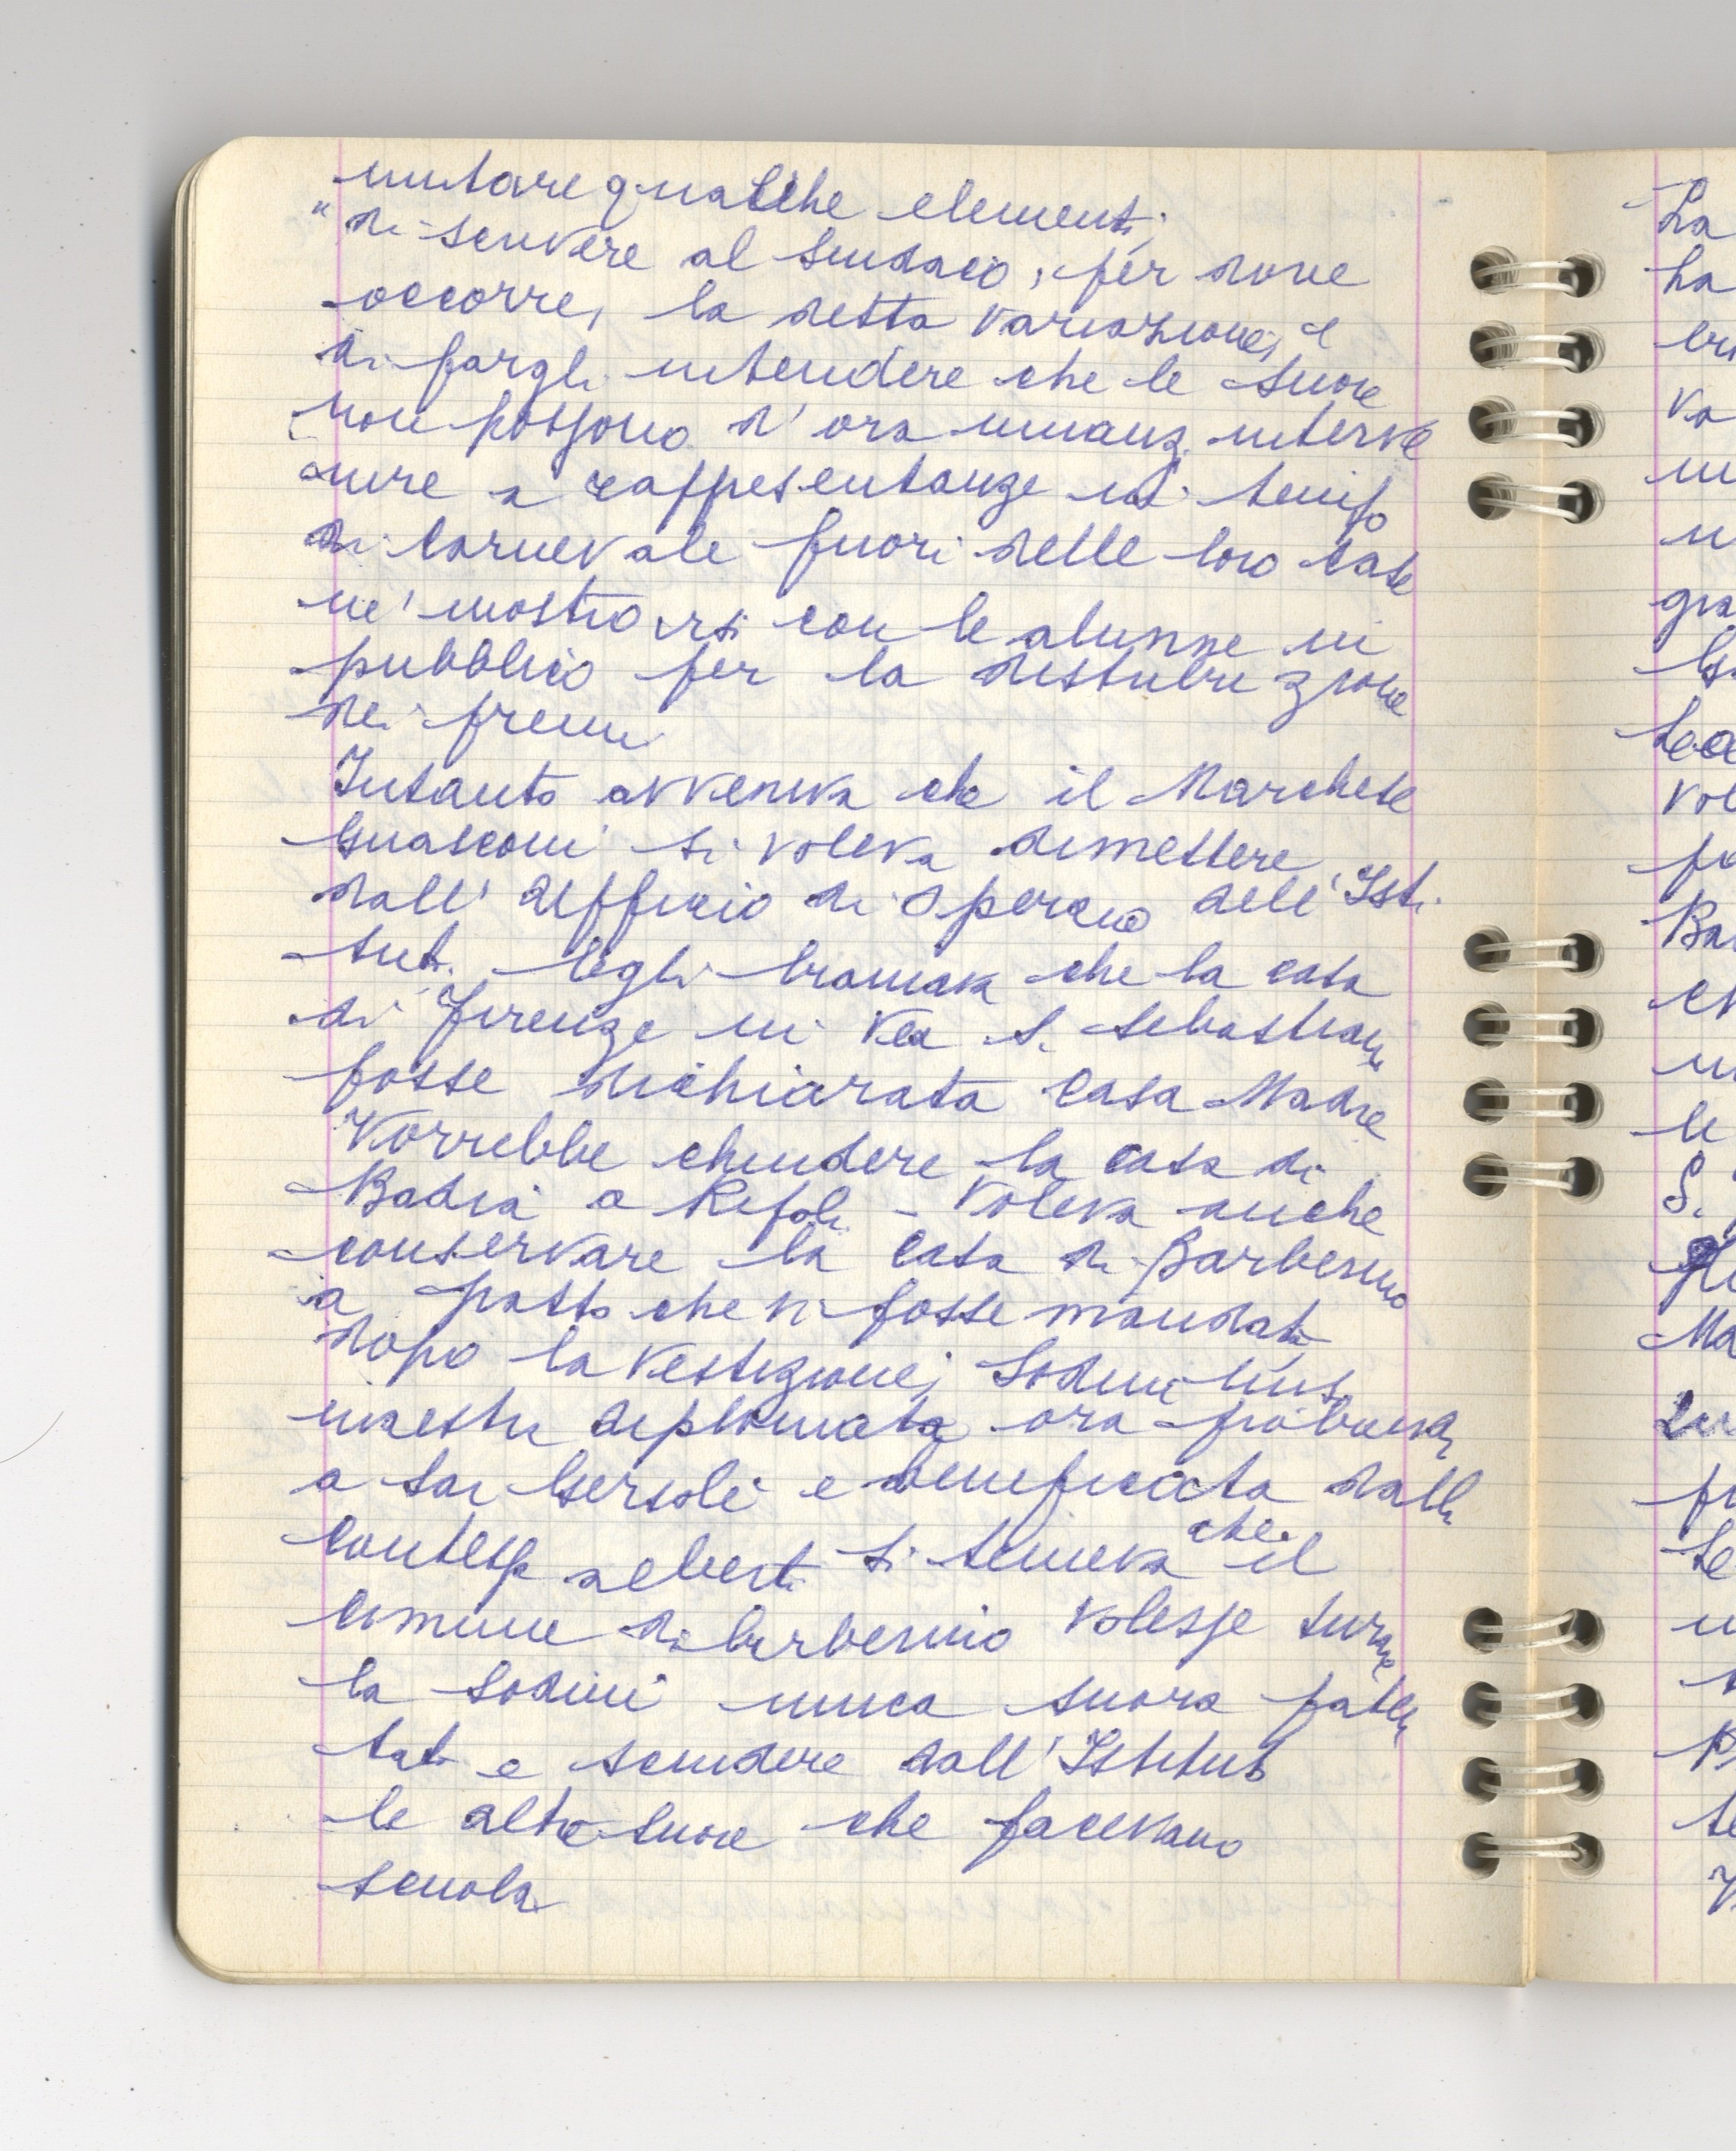 mutare qualche elementi
"di scrivere al Sindaco, per dove
occorre, la detta variazione, e
di fargli intendere che le suore
non possono d'ora innanzi interve
nire a rappresentanze in tempo
di carnevale fuori delle loro case
ne' mostrarsi con le alunne in
pubblico per la distribuzione
dei premi
Intanto avveniva che il Marchese
Guasconi si voleva dimettere
dall'Ufficio di Operaio dell'Isti
tuto. Egli bramava che la casa
di Firenze in Via S. Sebastiano
fosse dichiarata Casa Madre
Vorrebbe chiudere la casa di
Badia a Ripoli - Voleva anche
conservare la casa di Barberino
a patto che vi fosse mandata
dopo la vestizione, Sodini
maestra diplomata ora probanda
a San Gersolè e beneficata dalla
Contessa Alberti si temeva che il
comune di barberino volesse
la Sodini unica suora paten
tata e scindere dall'Istituto
le altre suore che facevano
scuola
La
ha